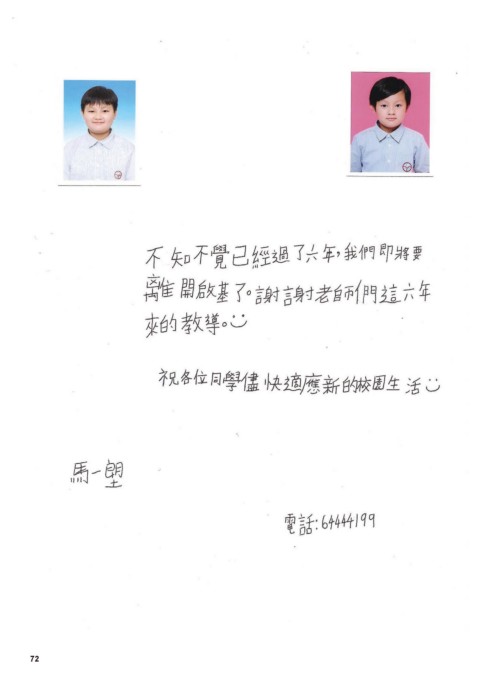 不知不覺已經過了六年，我們即將要
離開啟基了。謝謝老師們這六年
來的教導。
祝各位同學儘快適應新的校園生活
馬一塱
電話:64444199
72